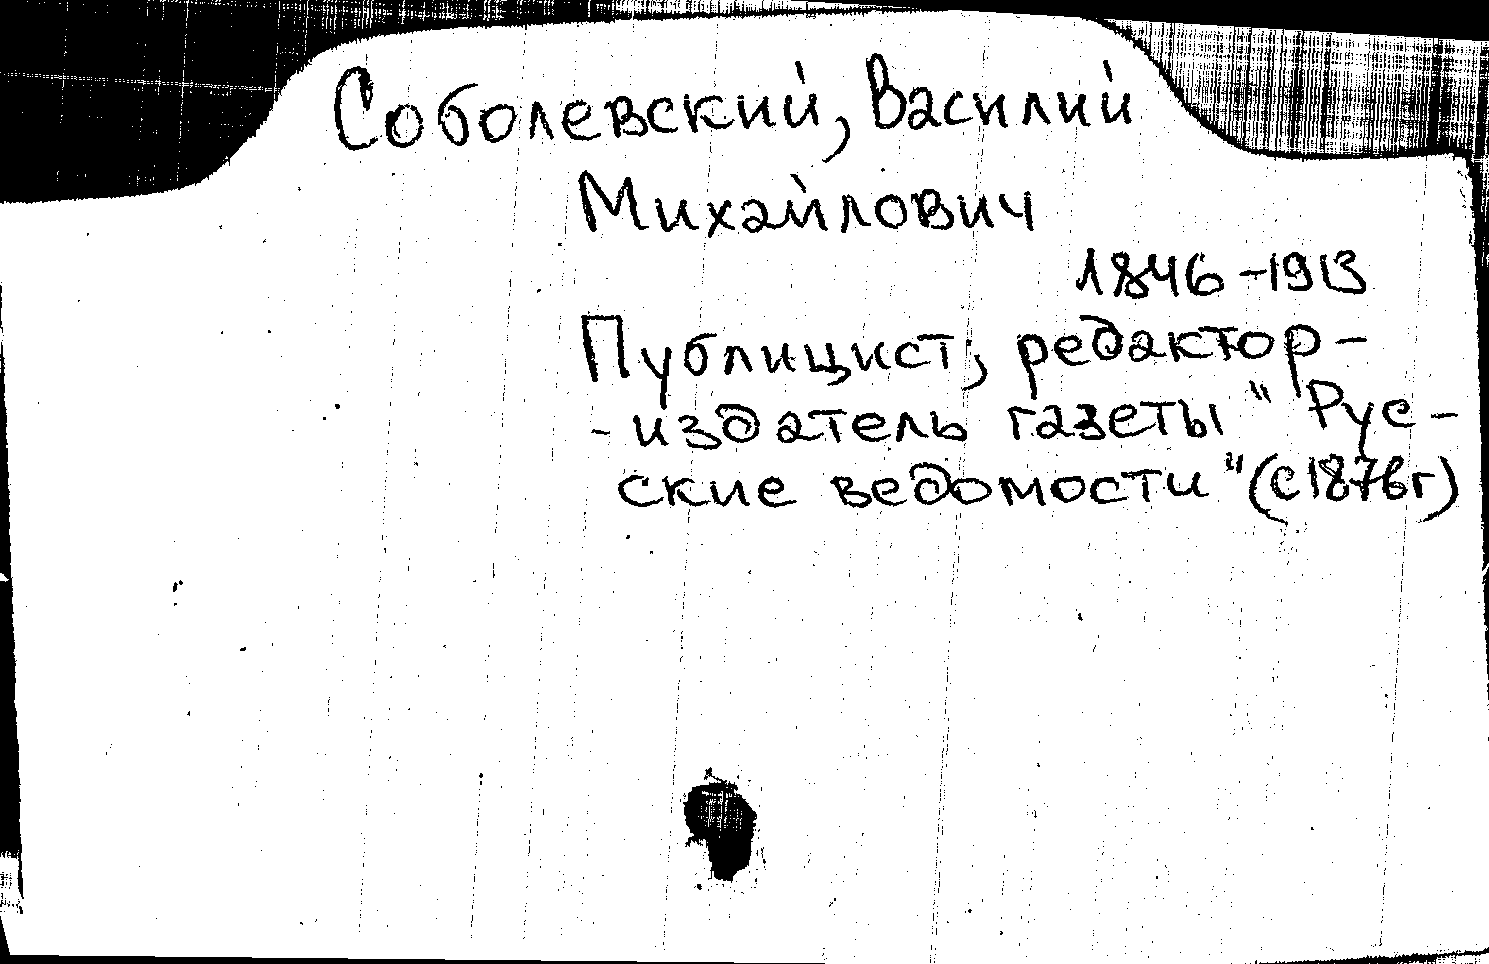 Соболевский, Василий
Михайлович
1846-1913
Публицист, редактор-
-издатель газеты "Рус-
ские ведомости" (с 1876г)